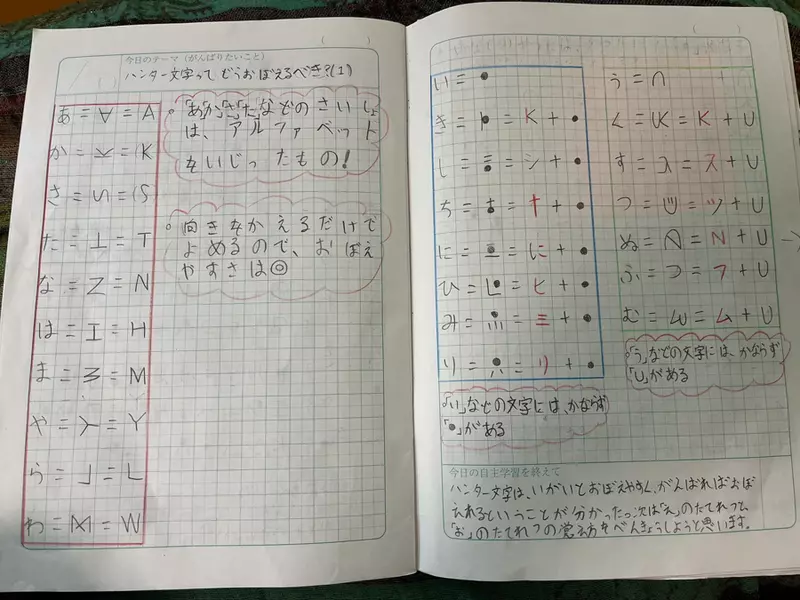 今日のテーマ(がんばりたいこと)
ハンター文字って、どうおぼえるべき?(1)
あ=∀=A
か=K
さ=S
た=⊥=T
な=Z=N
は=工=H
ま=M
や=Y
ら=」=L
わ=M=W
。「あ」「か」「さ」「た」などのさいしょ
は、アルファベット
をいじったもの!
。向きをかえるだけで
よめるので、おぼえ
やすさは◎
い=•
き=K+•
し=シ+•
ち=+•
に=に+•
ひ=ヒ+•
み=ミ+•
り=リ+•
「い」などの文字には、かならず
「•」がある
う=∩
く=K+U
す=ス+U
つ=ツ+U
ぬ=N+U
ふ=フ+U
む=ム+U
。「う」などの文字には、かならず
「U」がある
今日の自主学習を終えて
ハンター文字は、いがいとおぼえやすく、がんばればおぼ
えれるということが分かったっ次は「え」のたてれつと、
「お」のたてれつの覚え方をべんきょうしようと思います。